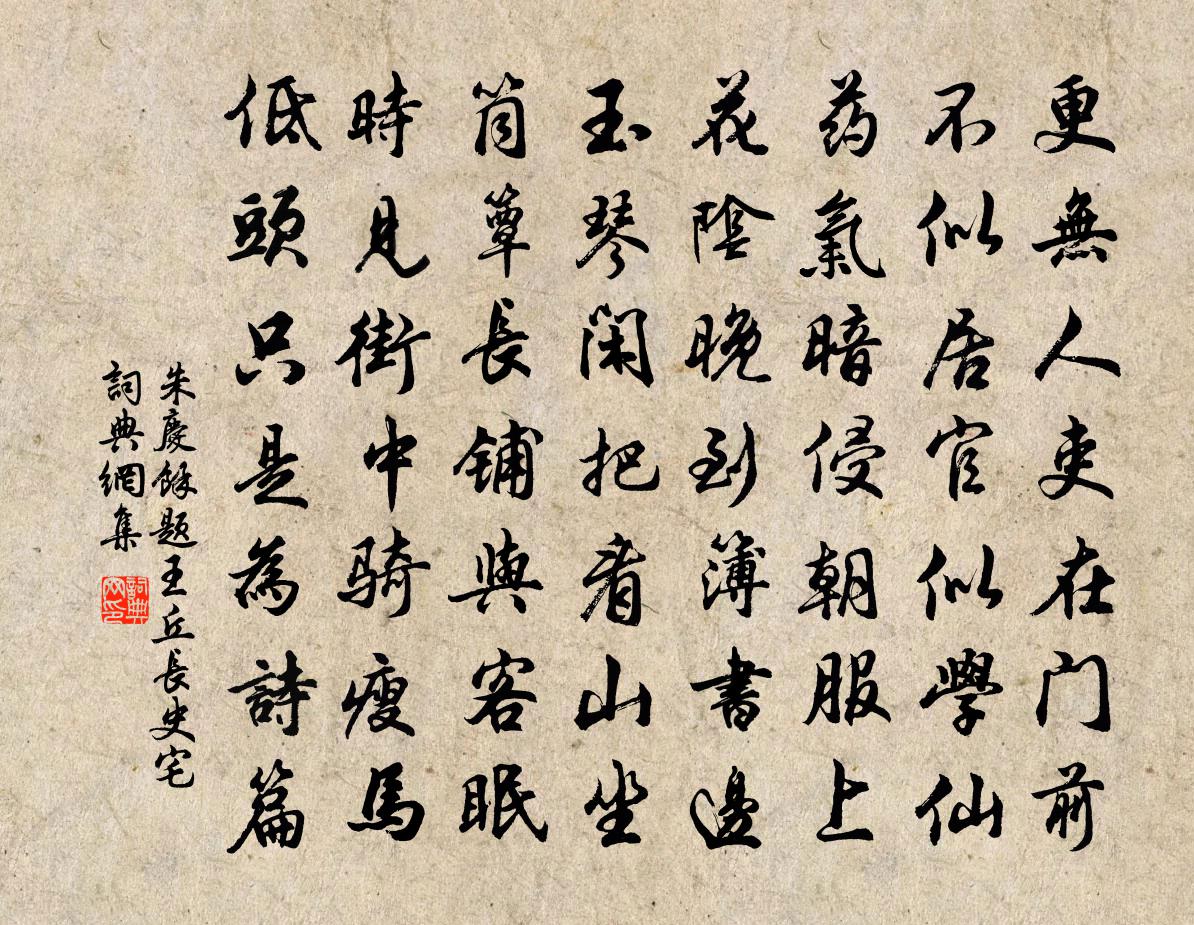 更無人吏在门前
不似居官似學仙
药氣暗侵朝服上
花陰晚到簿書邊
玉琴閑把看山坐
筒簟長鋪與客眠
時見街中騎瘦馬
低頭只是為詩篇
朱慶餘題王丘長史宅
詞典網集
詞典網印